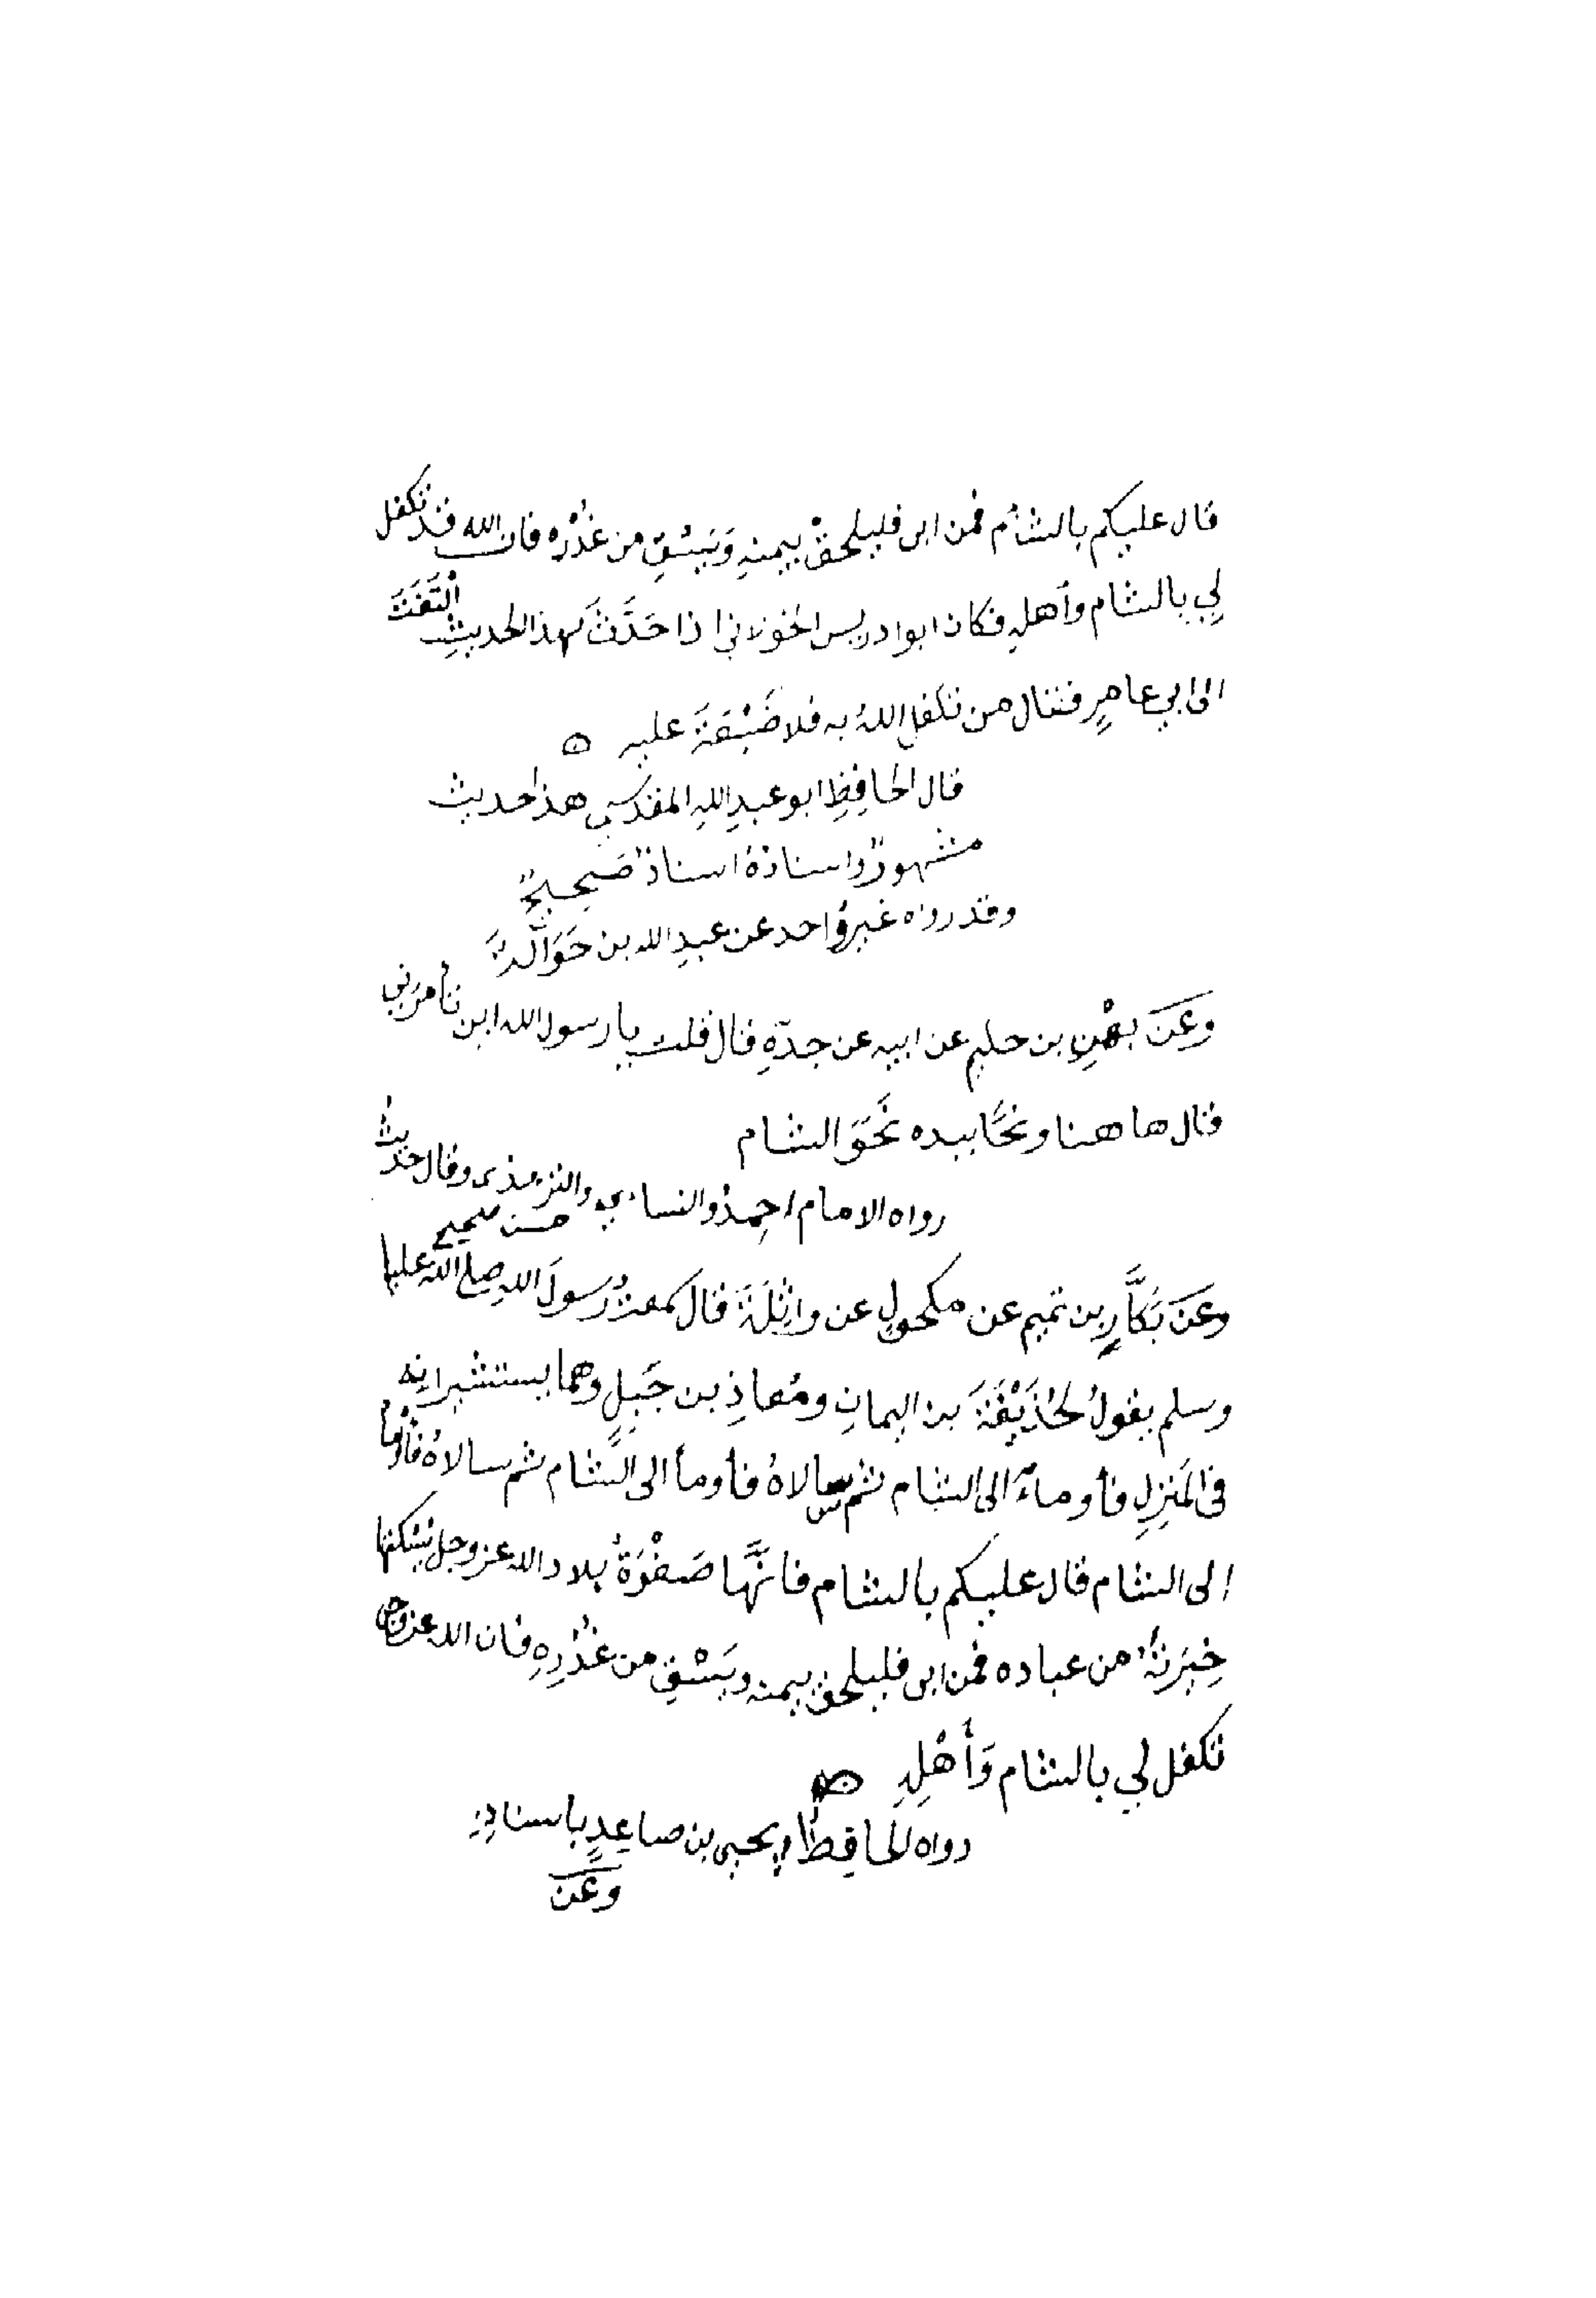 قال عليكم بالشأم فمن ابى فليلحقْ بيمنهِ وَيَسْقِ من غُدُرُه فان الله قد تكفل
لِي بالشام وأهلهِ فكان ابو ادريس الخولاني اذا حَدَّثَ بهذا الحديثِ التَفَتَ
الى ابي عامرٍ فقال من تكفل اللهُ به فلا ضَيْعَةَ عليه ه
قال الحافِظِ ابو عبدِ اللهِ المقدسي هذا حديث
مشهورٌ واسنادهُ اسنادٌ صَحِيحٌ
وقد رواه غيرُ واحد عن عبدِ الله بن حَوَالَةَ
وعَن بهْزِ بن حكيم عن ابيه عن جدّهِ قال قلت يا رسول الله اين تأمرُني
قال هاهنا ونَحَّا بيده نَحَوَ الشام
رواه الامام احمدُ والنساءي والترمذى وقال حديثٌ
حسن صحيح
وعَن بَكَّارِ بن تميم عن مكحولٍ عن واثِلَةَ قال سمعتُ رسولَ اللهِ صلى الله عليه
وسلم يقولُ لحُذَيْفَةَ بن اليمانِ ومُعاذِ بن جَبَلٍ وهما يستشيرانِه
في المَنزِلِ فأوماءَ الى الشام ثم سالاهُ فأومأ الى الشام ثم سالاهُ فأَومأ
الى الشام قال عليكم بالشام فانَّها صَفْوَةُ بلاد الله عز وجل يُسْكنها
خِيَرتَهُ من عباده فمن ابى فليلحق بيمنه ويَسْقِ من غُدُرِهِ فان الله عز وجل
تكفل لي بالشام وَأَهْلِهِ ه
رواه الحافِظُ يحيى بن صاعِدٍ باسنادِهِ
وعَن